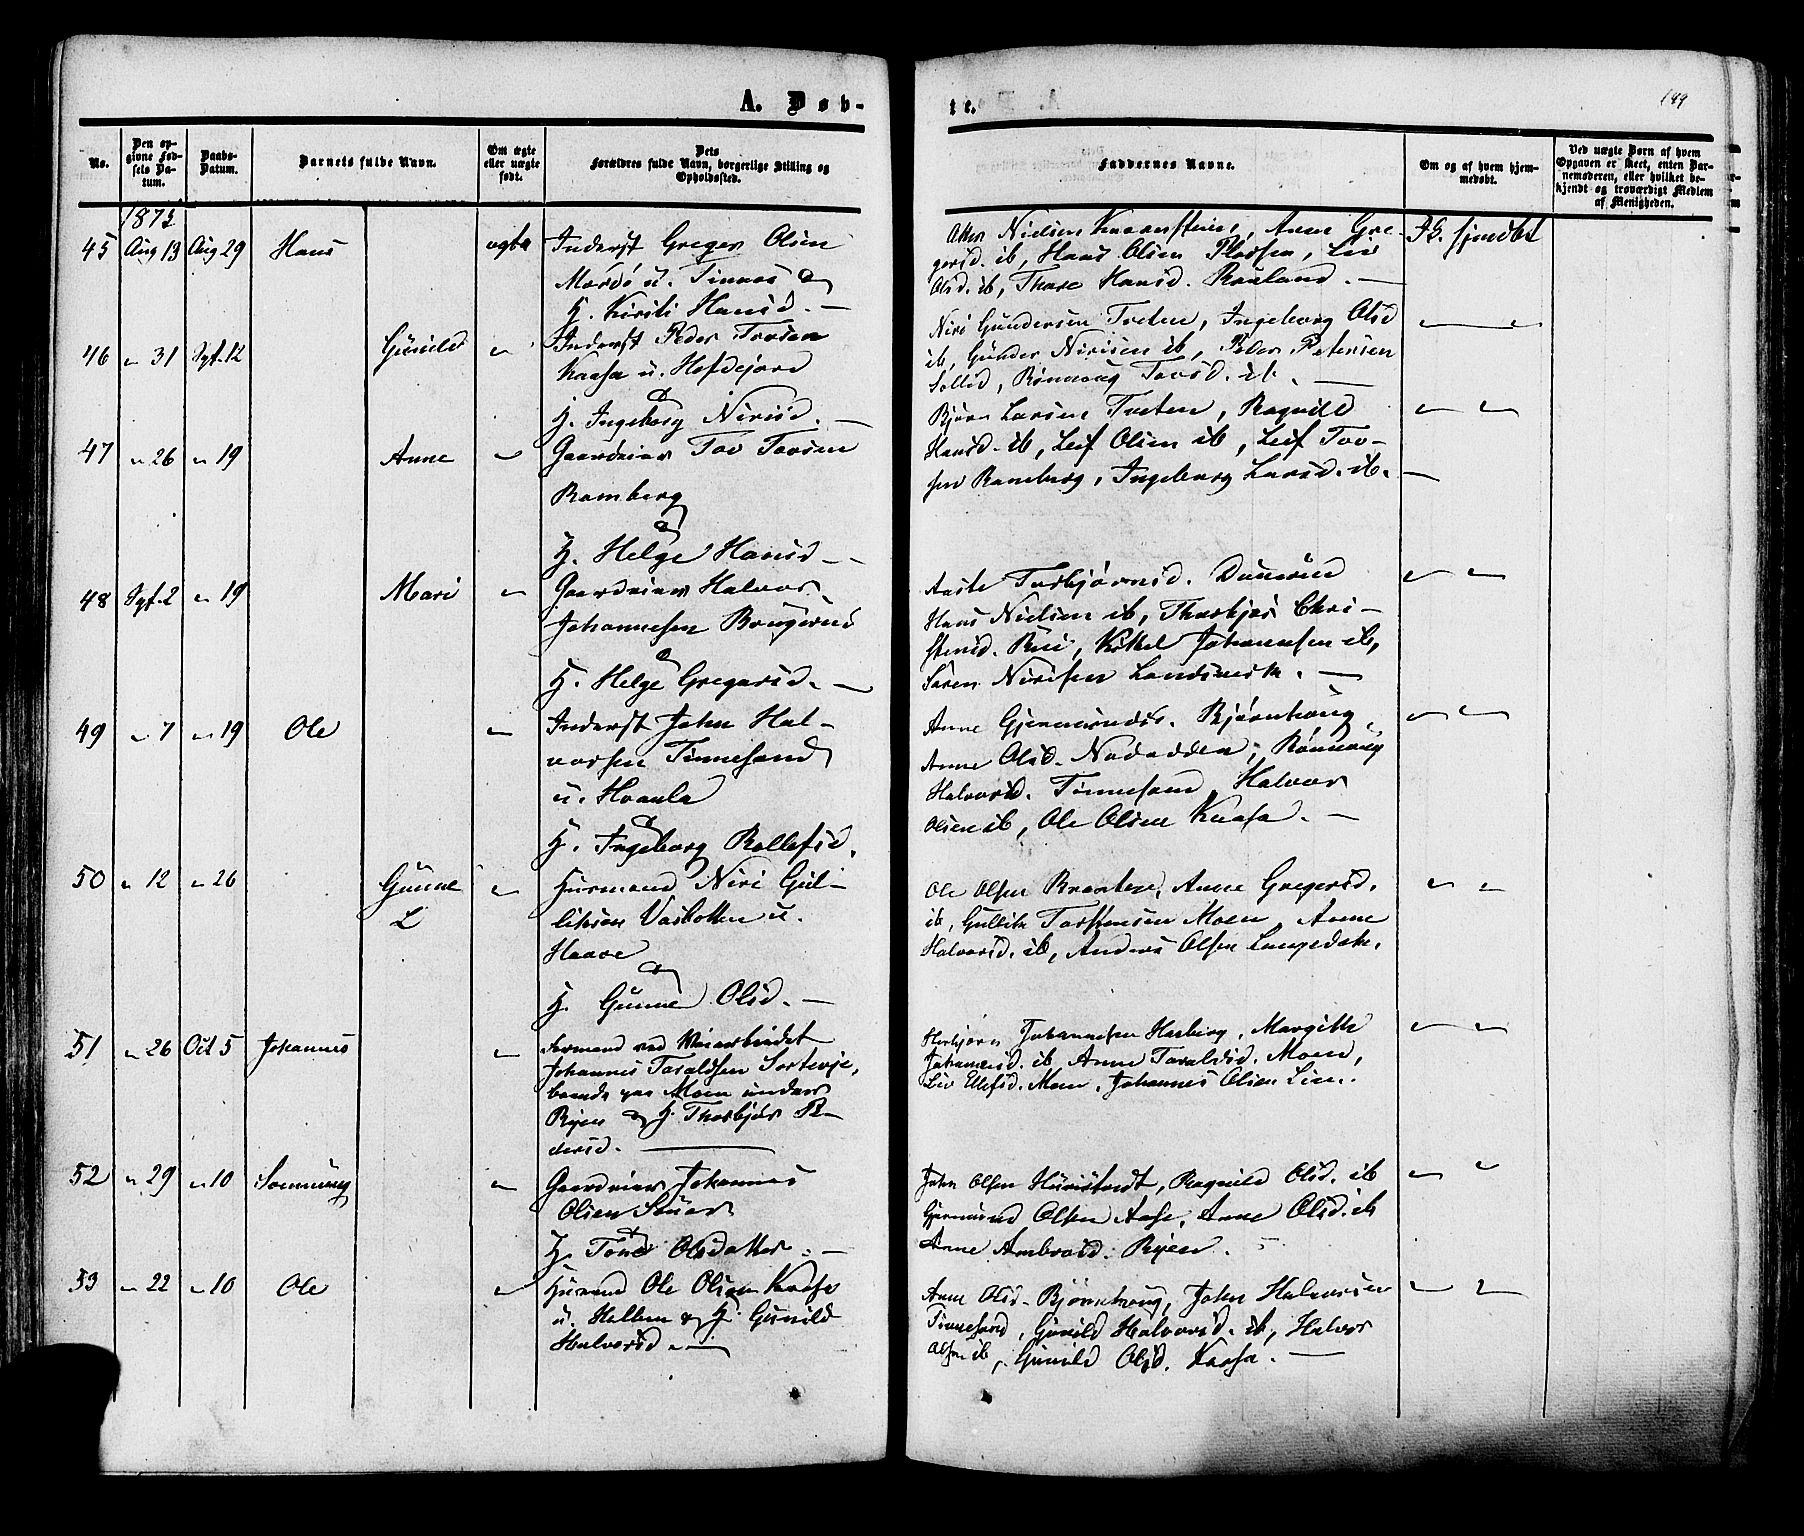 A. Døb-
te.
149
No.
Den op-
givne Fød-
sels Da-
tum.
Daabs-
Datum.
Barnets fulde Navn.
Om ægte
eller uægte
født.
Dets
Forældres fulde Navn, borgerlige Stilling og
Opholdssted.
Faddernes Navne.
Om og af hvem hjem-
medøbt.
Ved uægte Børn af hvem
Opgaven er skeet, enten Bar-
nemoderen, eller hvilket be-
kjendt og troværdigt Medlem
af Menigheden.
1873
45 Aug 13 Aug 29 Hans ægte Inderst Greger Olsen
u. Tinnes &
H. Kirsti Hansd. —
Nielsen Anne Gre-
gersd. ib, Hans Olsen Liv
Olsd. ib, Thore Hansd. Rauland. —
P.G. hjmdbt
46 " 31 Spt. 12 Gunild " Inderst Peder Tovsen
Kaasa u. Hefdejord
&
H. Ingeborg Nirisd. —
Niri Gundersen Tveten, Ingeborg Olsd
ib, Gunder Nirisen ib, Peder Petersen
Sollid, Rønnoug Tovsd. ib. —
47 " 26 " 19 Anne " Gaardeier Tov Tovsen
Ramberg
&
H. Helge Hansd —
Bjørn Larsen Tveten, Ragnild
Hansd. ib, Leif Olsen ib, Leif Tov-
sen Ramberg, Ingeborg Larsd. ib. —
48 Spt. 2 " 19 Mari " Gaardeier Halvor
Johannesen Bongerud
&
H. Helge Gregersd. —
Aaste Torbjørnsd.
Hans Nielsen ib, Thorbjør Chri-
stensd. Rui, Kittel Johannesen ib,
Søren Nirisen Landsverk. —
49 " 7 " 19 Ole " Inderst John Hal-
vorsen Tinnesand
u. Hvaala
&
H. Ingeborg Rollefsd.
Anne Gjermundsd. Bjørnhoug,
Anne Olsd. Notodden, Rønnoug
Halvorsd. Tinnesand Halvor
Olsen ib, Ole Olsen Kaasa. —
50 " 12 " 26 Gunne " Husmand Niri Gul-
L
liksen Vasbotten u.
Haave
&
H. Gunne Olsd. —
Ole Olsen Braaten, Anne Gregersd.
ib, Gullik Torstensen Moen, Anne
Halvorsd. ib, Anders Olsen Langedak.
51 " 26 Oct 5 Johannes " Formand ved Veiarbeidet
Johannes Taraldsen
boende paa Moen under
Ryen & H. Thorbjør Pe-
dersd. —
Johannesen Margith
Johannesd. ib Anne Taraldsd. Moen,
Liv Ellefsd. Moen, Johannes Olsen Lien.
52 " 29 " 10 Sonnung " Gaardeier Johannes
Olsen
&
H. Tone Olsdatter. —
John Olsen Ragnild Olsd. ib
Gjermund Olsen Aase, Anne Olsd. ib
Anne Ryen.
53 " 22 " 10 Ole " Husmd Ole Olsen Kaasa
u. & H. Gunild
Halvorsd. —
Anne Olsd. Bjørnhoug, John Halvorsen
Tinnesand, Gunild Halvorsd. ib, Halvor
Olsen ib, Gunild Olsd. Kaasa. —